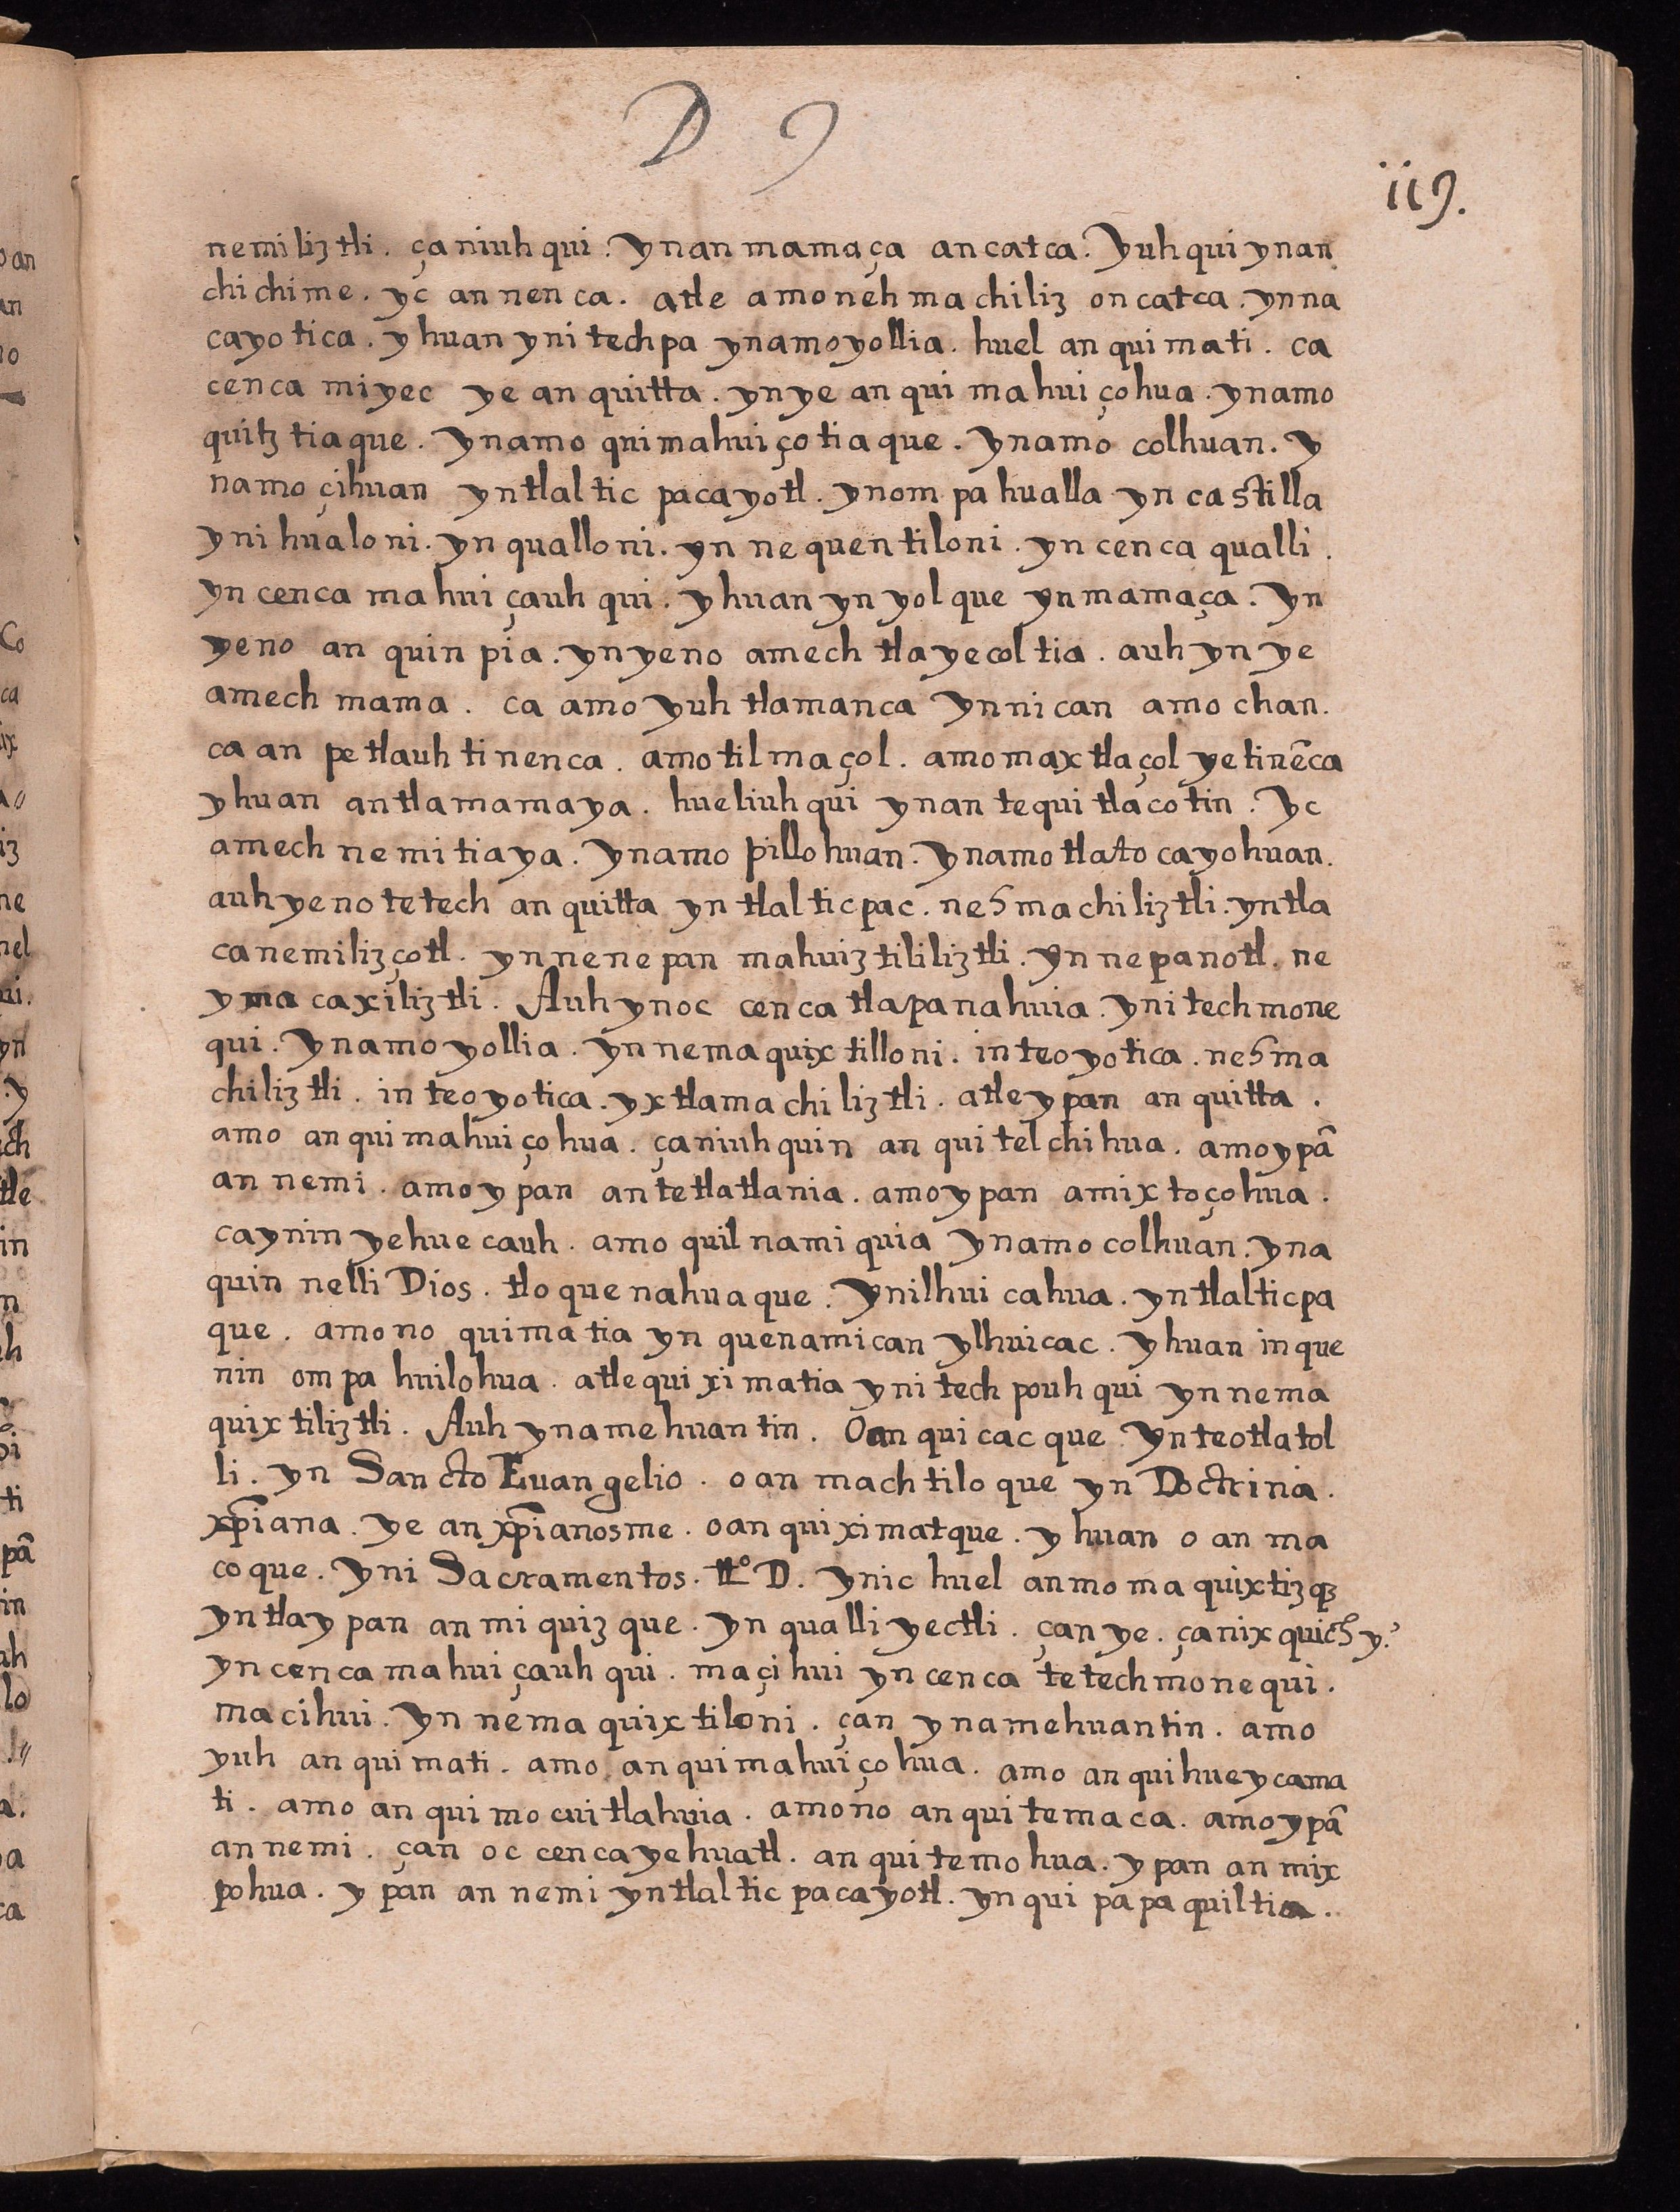 D 9
ii9.
nemiliztli. çaniuhqui. ynan mamaça ancatca. Yuhqui ynan
chichime. yc annenca. atle amonehmachiliz oncatca. ynna
cayotica. yhuan ynitechpa ynamoyollia. huel anquimati. ca
cenca miyec ye anquitta. ynye anquimahuiçohua. ynamo
quitztiaque. ynamo quimahuiçotiaque. ynamo colhuan. y
namo çihuan yntlalticpacayotl. ynompa hualla yn castilla
ynihualoni. yn qualloni. yn nequentiloni. yn cenca qualli.
yn cenca mahuiçauhqui. yhuan yn yolque yn mamaça. yn
yeno anquinpia. ynyeno amechtlayecoltia. auh yn ye
amechmama. ca amo yuh tlamanca ynnican amochan.
ca anpetlauhtinenca. amotilmaçol. amomaxtlaçol yetinēca
yhuan antlamamaya. hueliuhqui ynantequitlacotin. Yc
amechnemitiaya. ynamo pillohuan. ynamotlatocayohuan.
auh yeno tetech anquitta yn tlalticpac. nehmachiliztli. yntla
canemilizçotl. ynnenepan mahuiztililiztli. yn nepanotl. ne
ymacaxiliztli. Auh ynoc cenca tlapanahuia. ynitechmone
qui. ynamoyollia. ynnemaquixtilloni. inteoyotica. nehma
chiliztli. inteoyotica. yxtlamachiliztli. atleypan anquitta.
amo anquimahuiçohua. çaniuhquin anquitelchihua. amoypā
annemi. amoypan antetlatlania. amoypan amixtoçohua.
caynin yehuecauh. amo quilnamiquia ynamocolhuan. yna
quin nelli Dios. tloquenahuaque. ynilhuicahua. yntlalticpa
que. amono quimatia yn quenamican ylhuicac. yhuan inque
nin ompa huilohua. atlequiximatia ynitechpouhqui ynnema
quixtiliztli. Auh ynamehuantin. Oanquicacque ynteotlatol
li. yn Sancto Euangelio. oanmachtiloque yn Doctrina.
xp̄iana. ye anxp̄ianosme. oanquiximatque. yhuan oanma
coque. yni Sacramentos. tt.º D. ynic huel anmomaquixtizq̄
yntlaypan anmiquizque. yn qualli yectli. çanye. çanixquich y.
yncenca mahuiçauhqui. maçihui yncenca tetechmonequi.
macihui. yn nemaquixtiloni. çan ynamehuantin. amo
yuh anquimati. amo anquimahuiçohua. amo anquihueycama
ti. amo anquimocuitlahuia. amono anquitemaca. amoypā
annemi. çan oc cencayehuatl. anquitemohua. ypan anmix
pohua. ypan annemi yntlalticpacayotl. ynquipapaquiltia.